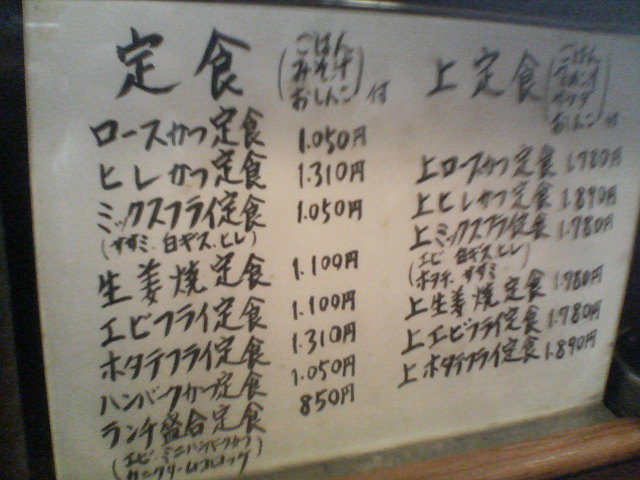 定食 (ごはん みそ汁 おしんこ) 付
ロースかつ定食 1.050円
ヒレかつ定食 1.310円
ミックスフライ定食 1.050円
(ササミ.白キス.ヒレ)
生姜焼定食 1.100円
エビフライ定食 1.100円
ホタテフライ定食 1.310円
ハンバーグかつ定食 1.050円
ランチ盛合定食 850円
(エビ.ミニハンバーグかつ
カニクリームコロッケ)
上定食 (ごはん サラダ おしんこ) 付
上ロースかつ定食 1.780円
上ヒレかつ定食 1.890円
上ミックスフライ定食 1.780円
(エビ 白キス.ヒレ
ホタテ.ササミ)
上生姜焼定食 1.780円
上エビフライ定食 1.780円
上ホタテフライ定食 1.890円